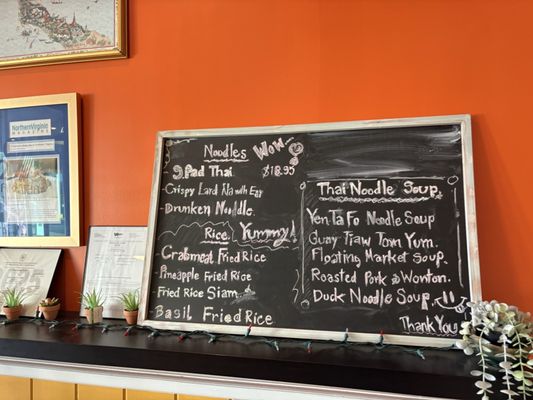 NorthernVirginia
MAGAZINE
Noodles Wow
9. Pad Thai. $18.95
Crispy Lard Na with Egg
Drunken Noodle.
Rice. Yummy!
Crabmeat Fried Rice
Pineapple Fried Rice
Fried Rice Siam
Basil Fried Rice
Thai Noodle Soup.
Yen Ta Fo Noodle Soup
Guay Tiaw Tom Yum.
Floating Market Soup.
Roasted Pork & Wonton.
Duck Noodle Soup.
Thank You